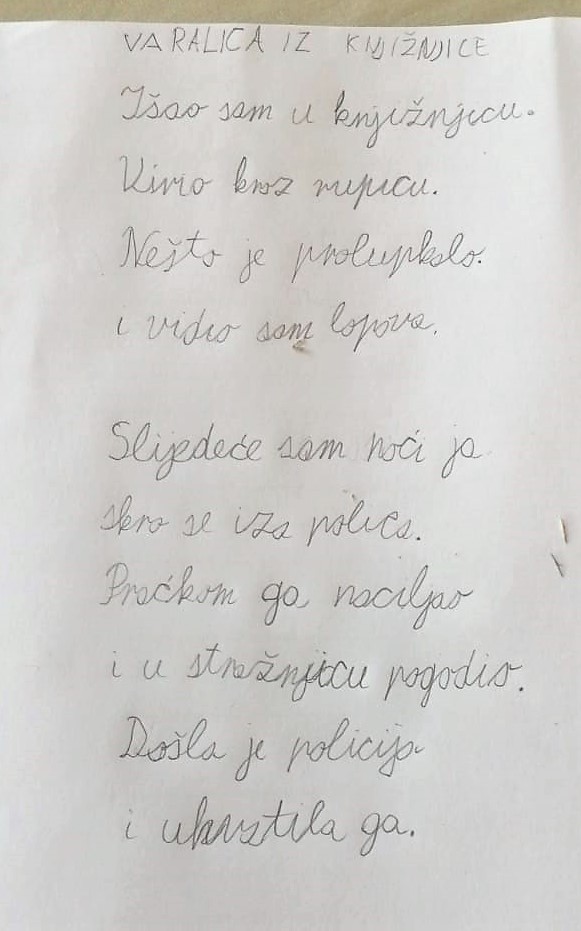 VARALICA IZ KNJIŽNJICE
Išao sam u knjižnjicu.
Virio kroz rupicu.
Nešto je prolupkalo.
i vidio sam lopova.
Slijedeće sam noći ja
skro se iza polica.
Praćkom ga naciljao
i u stražnjicu pogodio.
Došla je policija
i uhvatila ga.